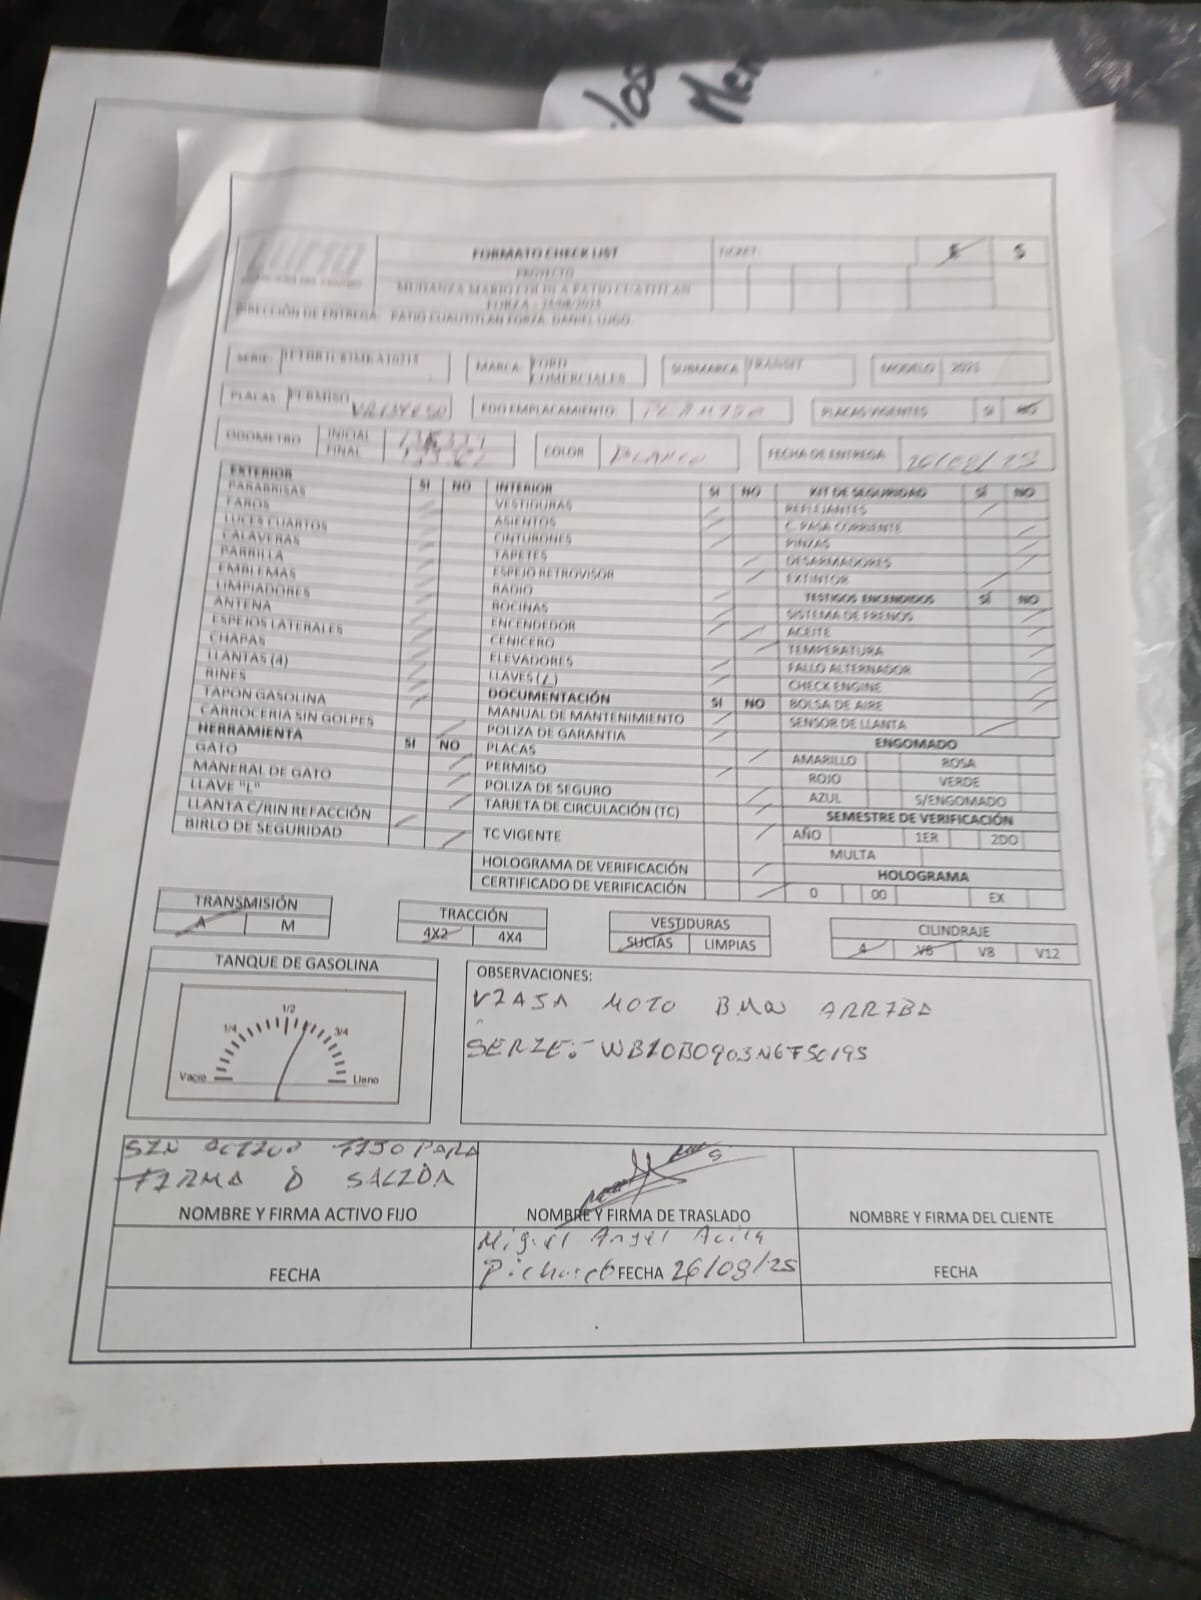 FORMATO CHECK LIST
TICKET:
E
S
PROYECTO
MUDANZA MARIO COLIN A PATIO CUATITLAN
FORZA - 
DIRECCIÓN DE ENTREGA: PATIO CUAUTITLAN FORZA. DANIEL LUGO.
SERIE:
MARCA: FORD COMERCIALES
SUBMARCA TRANSIT
MODELO 2021
PLACAS: PERMISO
EDO EMPLACAMIENTO:
PLACAS VIGENTES SI NO
ODOMETRO INICIAL FINAL
COLOR BLANCO
FECHA DE ENTREGA 26/08/25
EXTERIOR SI NO
PARABRISAS
FAROS
LUCES CUARTOS
CALAVERAS
PARRILLA
EMBLEMAS
LIMPIADORES
ANTENA
ESPEJOS LATERALES
CHAPAS
LLANTAS (4)
RINES
TAPON GASOLINA
CARROCERIA SIN GOLPES
HERRAMIENTA SI NO
GATO
MANERAL DE GATO
LLAVE "L"
LLANTA C/RIN REFACCIÓN
BIRLO DE SEGURIDAD
INTERIOR SI NO
VESTIDURAS
ASIENTOS
CINTURONES
TAPETES
ESPEJO RETROVISOR
RADIO
BOCINAS
ENCENDEDOR
CENICERO
ELEVADORES
LLAVES
DOCUMENTACIÓN SI NO
MANUAL DE MANTENIMIENTO
POLIZA DE GARANTIA
PLACAS
PERMISO
POLIZA DE SEGURO
TARJETA DE CIRCULACIÓN (TC)
TC VIGENTE
HOLOGRAMA DE VERIFICACIÓN
CERTIFICADO DE VERIFICACIÓN
KIT DE SEGURIDAD SÍ NO
REFLEJANTES
C. PASA CORRIENTE
PINZAS
DESARMADORES
EXTINTOR
TESTIGOS ENCENDIDOS SÍ NO
SISTEMA DE FRENOS
ACEITE
TEMPERATURA
FALLO ALTERNADOR
CHECK ENGINE
BOLSA DE AIRE
SENSOR DE LLANTA
ENGOMADO
AMARILLO ROSA
ROJO VERDE
AZUL S/ENGOMADO
SEMESTRE DE VERIFICACIÓN
AÑO 1ER 2DO
MULTA
HOLOGRAMA
0 00 EX
TRANSMISIÓN
A M
TRACCIÓN
4X2 4X4
VESTIDURAS
SUCIAS LIMPIAS
CILINDRAJE
4 V6 V8 V12
TANQUE DE GASOLINA
Vacio 1/4 1/2 3/4 Lleno
OBSERVACIONES:
VIAJA MOTO BMW ARRIBA
SERIE:-
SIN ACTIVO FIJO PARA
FIRMA D SALIDA
NOMBRE Y FIRMA ACTIVO FIJO
NOMBRE Y FIRMA DE TRASLADO
NOMBRE Y FIRMA DEL CLIENTE
Miguel Angel
FECHA
FECHA 26/08/25
FECHA